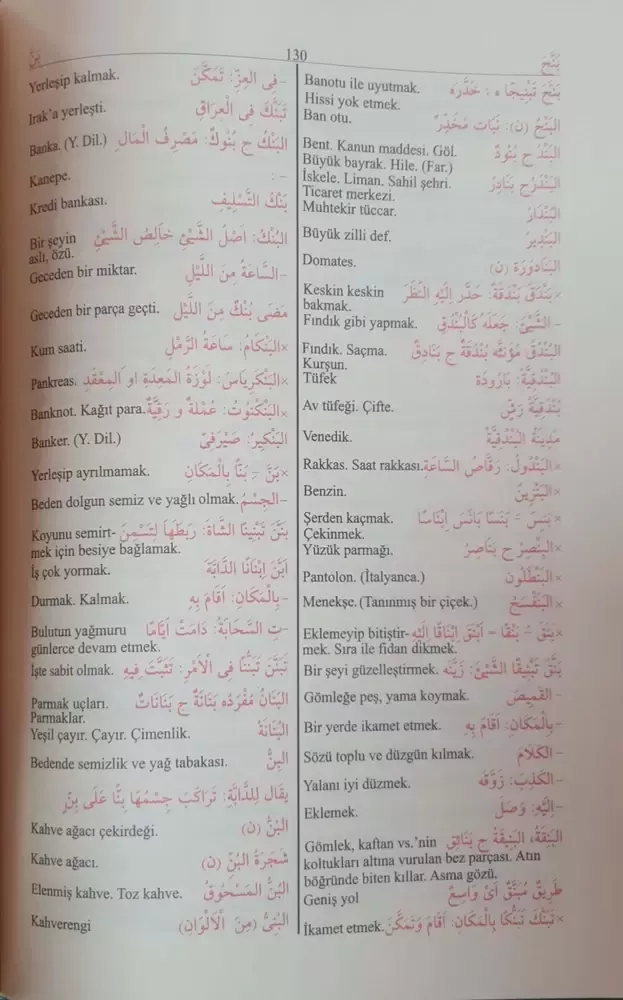 بَنَّجَ
130
بَنَّ
بَنَّجَ تَبْنِيجًا ه : خَدَّرَه
Banotu ile uyutmak.
Hissi yok etmek.
اَلبَنْجُ (ن): نَبَات مُخَدِّرٌ
Ban otu.
اَلبَنْدُ ج بُنُودٌ
Bent. Kanun maddesi. Göl.
Büyük bayrak. Hile. (Far.)
اَلبَنْدَرُ ج بَنَادِرُ
İskele. Liman. Sahil şehri.
Ticaret merkezi.
اَلبُنْدَارُ
Muhtekir tüccar.
اَلبَنْدِيرُ
Büyük zilli def.
اَلبَنَادُورَة (ن)
Domates.
×بَنْدَقَ بَنْدَقَةً: حَدَّرَ اِلَيْهِ النَّظَرَ
Keskin keskin
bakmak.
– الشَّيْئَ: جَعَلَهُ كَالْبُنْدُقِ
Fındık gibi yapmak.
اَلبُنْدُقُ مُؤَنَّثُه بُنْدُقَةٌ ج بَنَادِقُ
Fındık. Saçma.
Kurşun.
اَلبُنْدُقِيَّةُ: بَارُودَة
Tüfek
بُنْدُقِيَّةُ رَشٍّ
Av tüfeği. Çifte.
مَدِينَةُ الْبُنْدُقِيَّةُ
Venedik.
×اَلبَنْدُولُ: رَقَّاصُ السَّاعَةِ
Rakkas. Saat rakkası.
×اَلبَنْزِينُ
Benzin.
Şerden kaçmak.
Çekinmek.
×اَلبِنْصِرُ ج بَنَاصِرُ
Yüzük parmağı.
×اَلبَنْطَلُون
Pantolon. (İtalyanca.)
×اَلبَنَفْسَجُ
Menekşe. (Tanınmış bir çiçek.)
×بَنَقَ – بَنْقًا – اَبْنَقَ اِبْنَاقًا اِلَيْهِ
Eklemeyip bitiştir-
mek. Sıra ile fidan dikmek.
بَنَّقَ تَبْنِيقًا الشَّيْئَ: زَيَّنَه
Bir şeyi güzelleştirmek.
– الْقَمِيصَ
Gömleğe peş, yama koymak.
– بِالْمَكَانِ: اَقَامَ بِهِ
Bir yerde ikamet etmek.
– الْكَلَامَ
Sözü toplu ve düzgün kılmak.
– الْكَذِبَ: زَوَّقَه
Yalanı iyi düzmek.
– اِلَيْهِ: وَصَلَ
Eklemek.
اَلبَنَقَةُ، اَلبَنِيقَةُ ج بَنَائِق
Gömlek, kaftan vs.'nin
koltukları altına vurulan bez parçası. Atın
böğründe biten kıllar. Asma gözü.
طَرِيقٌ مُبَنَّقٌ اَىْ وَاسِعٌ
Geniş yol
×تَبَنَّكَ تَبَنُّكًا بِالْمَكَانِ: اَقَامَ وَتَمَكَّنَ
İkamet etmek.
– فِى الْعِزِّ: تَمَكَّنَ
Yerleşip kalmak.
تَبَنَّكَ فِى الْعِرَاقِ
Irak'a yerleşti.
اَلبَنْكُ ج بُنُوكٌ: مَصْرِفُ الْمَالِ
Banka. (Y. Dil.)
– :
Kanepe.
بَنْكُ التَّسْلِيفِ
Kredi bankası.
اَلبُنْكُ: اَصْلُ الشَّيْئِ خَالِصُ الشَّيْئِ
Bir şeyin
aslı, özü.
– السَّاعَةُ مِنَ اللَّيْلِ
Geceden bir miktar.
مَضَى بُنْكٌ مِنَ اللَّيْلِ
Geceden bir parça geçti.
×اَلبَنْكَامُ: سَاعَةُ الرَّمْلِ
Kum saati.
×اَلبَنْكِرِيَاسُ: لَوْزَةُ الْمَعِدَةِ اَوِ الْمِعْقَد
Pankreas.
×اَلبَنْكْنُوتُ: عُمْلَةٌ وَرَقِيَّةٌ
Banknot. Kağıt para.
اَلبَنْكِيرُ: صَيْرَفِىٌّ
Banker. (Y. Dil.)
×بَنَّ – بَنًّا بِالْمَكَانِ
Yerleşip ayrılmamak.
– الْجِسْمُ
Beden dolgun semiz ve yağlı olmak.
بَنَّنَ تَبْنِينًا الشَّاةَ: رَبَطَهَا لِتَسْمِنَ
Koyunu semirt-
mek için besiye bağlamak.
اَبَنَّ اِبْنَانًا الدَّابَّةَ
İş çok yormak.
– بِالْمَكَانِ: اَقَامَ بِهِ
Durmak. Kalmak.
– تِ السَّحَابَةُ: دَامَتْ اَيَّامًا
Bulutun yağmuru
günlerce devam etmek.
تَبَنَّنَ تَبَنُّنًا فِى الْاَمْرِ: تَثَبَّتَ فِيهِ
İşte sabit olmak.
اَلبَنَانُ مُفْرَدُه بَنَانَةٌ ج بَنَانَاتٌ
Parmak uçları.
Parmaklar.
اَلبُنَانَةُ
Yeşil çayır. Çayır. Çimenlik.
اَلبِنُّ
Bedende semizlik ve yağ tabakası.
يُقَالُ لِلدَّابَّةِ: تَرَاكَبَ جِسْمُهَا بِنًّا عَلَى بِنٍّ
اَلبُنُّ (ن)
Kahve ağacı çekirdeği.
شَجَرَةُ الْبُنِّ (ن)
Kahve ağacı.
اَلبُنُّ الْمَسْحُوقُ
Elenmiş kahve. Toz kahve.
اَلبُنِّىُّ (مِنَ الْاَلْوَانِ)
Kahverengi